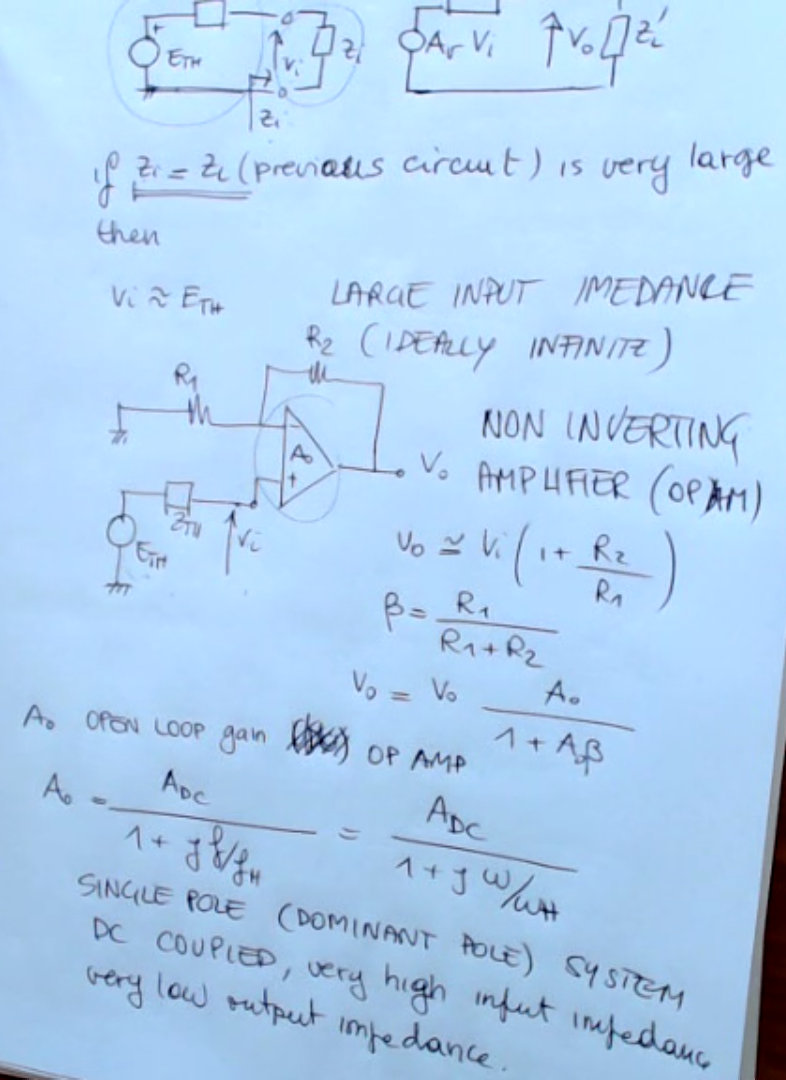 +
E_TH
V_i
Z_i
Z_i
A_v V_i
V_o
Z_L'
if Z_i = Z_L (previous circuit) is very large
then
V_i ≈ E_TH
LARGE INPUT IMEDANCE
(IDEALLY INFINITE)
R_2
R_1
-
A_o
+
V_o
Z_TH
E_TH
V_i
NON INVERTING
AMPLIFIER (OPAM)
V_o ≅ V_i (1 + R_2 / R_1)
β = R_1 / (R_1 + R_2)
V_o = V_o A_o / (1 + A_o β)
A_o OPEN LOOP gain OP AMP
A_o = A_DC / (1 + j f/f_H) = A_DC / (1 + j ω/ω_H)
SINGLE POLE (DOMINANT POLE) SYSTEM
DC COUPLED, very high input impedance
very low output impedance.